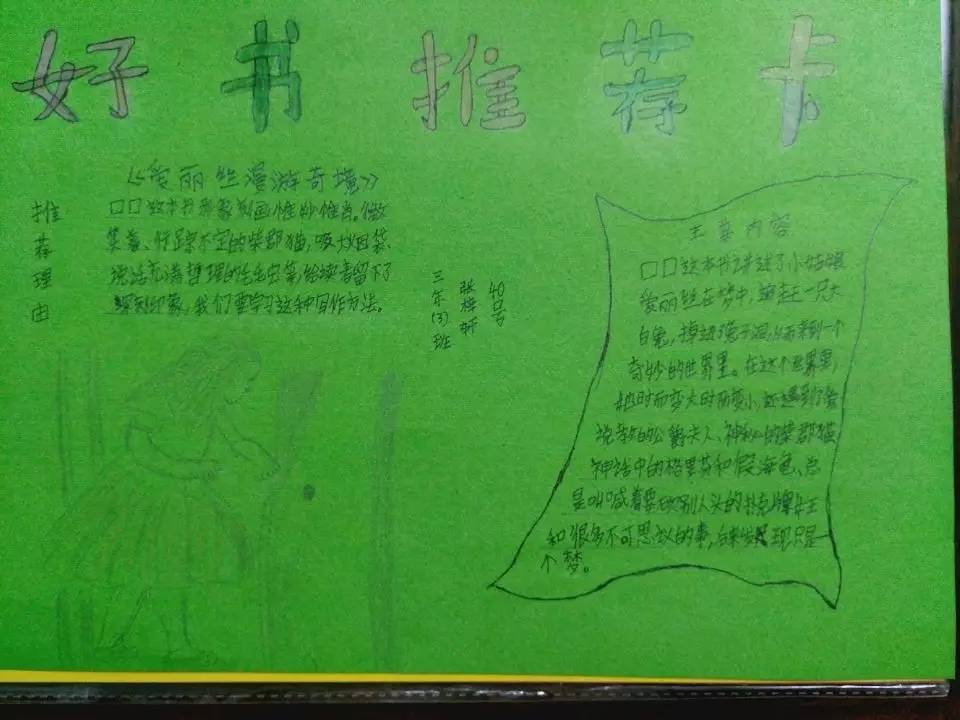 好书推荐卡
《爱丽丝漫游奇境》
推荐理由
□□这本书形象刻画惟妙惟肖。微
笑着、行踪不定的柴郡猫,吸水烟袋、
说话充满哲理的毛毛虫等,给读者留下了
深刻印象,我们要学习这种写作方法。
三年(3)班
张梓妍
40号
主要内容
□□这本书讲述了小姑娘
爱丽丝在梦中,追赶一只大
白兔,掉进兔子洞,从而来到一个
奇妙的世界里。在这个世界里,
她时而变大时而变小,还遇到了爱
说教的公爵夫人、神秘的柴郡猫
神话中的格里芬和假海龟、总
是叫喊着要砍别人头的扑克牌女王
和很多不可思议的事,后来发现只是一
个梦。